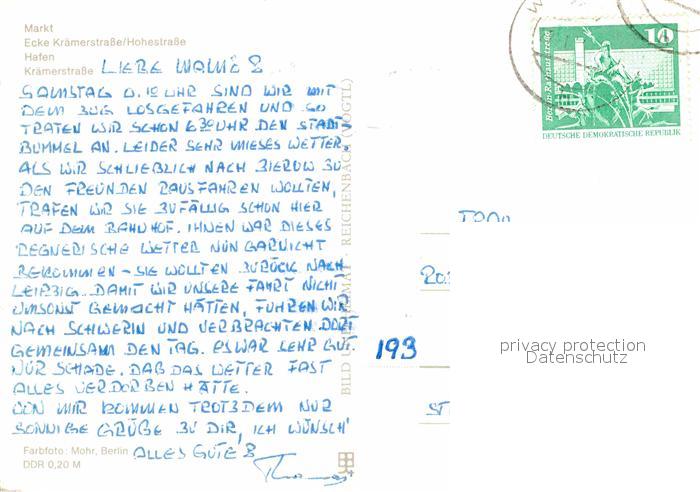 Markt
Ecke Krämerstraße/Hohestraße
Hafen
Krämerstraße
LIEBE MAMI !
SAMSTAG 0.10 UHR SIND WIR MIT
DEM ZUG LOSGEFAHREN UND SO
TRATEN WIR SCHON 6³⁰ UHR DEN STADT-
BUMMEL AN. LEIDER SEHR MIESES WETTER.
ALS WIR SCHLIEßLICH NACH BIEROW ZU
DEN FREUNDEN RAUSFAHREN WOLLTEN,
TRAFEN WIR SIE ZUFÄLLIG SCHON HIER
AUF DEM BAHNHOF. IHNEN WAR DIESES
REGNERISCHE WETTER NUN GARNICHT
BEKOMMEN – SIE WOLLTEN ZURÜCK NACH
LEIPZIG. DAMIT WIR UNSERE FAHRT NICHT
UMSONST GEMACHT HATTEN, FUHREN WIR
NACH SCHWERIN UND VERBRACHTEN DORT
GEMEINSAM DEN TAG. ES WAR SEHR GUT.
NUR SCHADE, DAß DAS WETTER FAST
ALLES VERDORBEN HÄTTE.
VON MIR KOMMEN TROTZDEM NUR
SONNIGE GRÜßE ZU DIR, ICH WÜNSCH'
ALLES GUTE !
Thomas
Farbfoto: Mohr, Berlin
DDR 0,20 M
BILD UND HEIMAT · REICHENBACH (VOGTL)
10
Berlin · Rathausstraße
DEUTSCHE DEMOKRATISCHE REPUBLIK
193
ST
privacy protection
Datenschutz